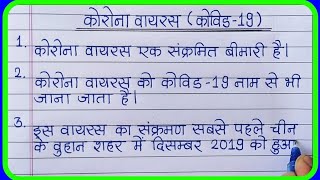 कोरोना वायरस (कोविड-19)
1. कोरोना वायरस एक संक्रमित बीमारी है।
2. कोरोना वायरस को कोविड-19 नाम से भी
जाना जाता है।
3. इस वायरस का संक्रमण सबसे पहले चीन
के वुहान शहर में दिसम्बर 2019 को हुआ